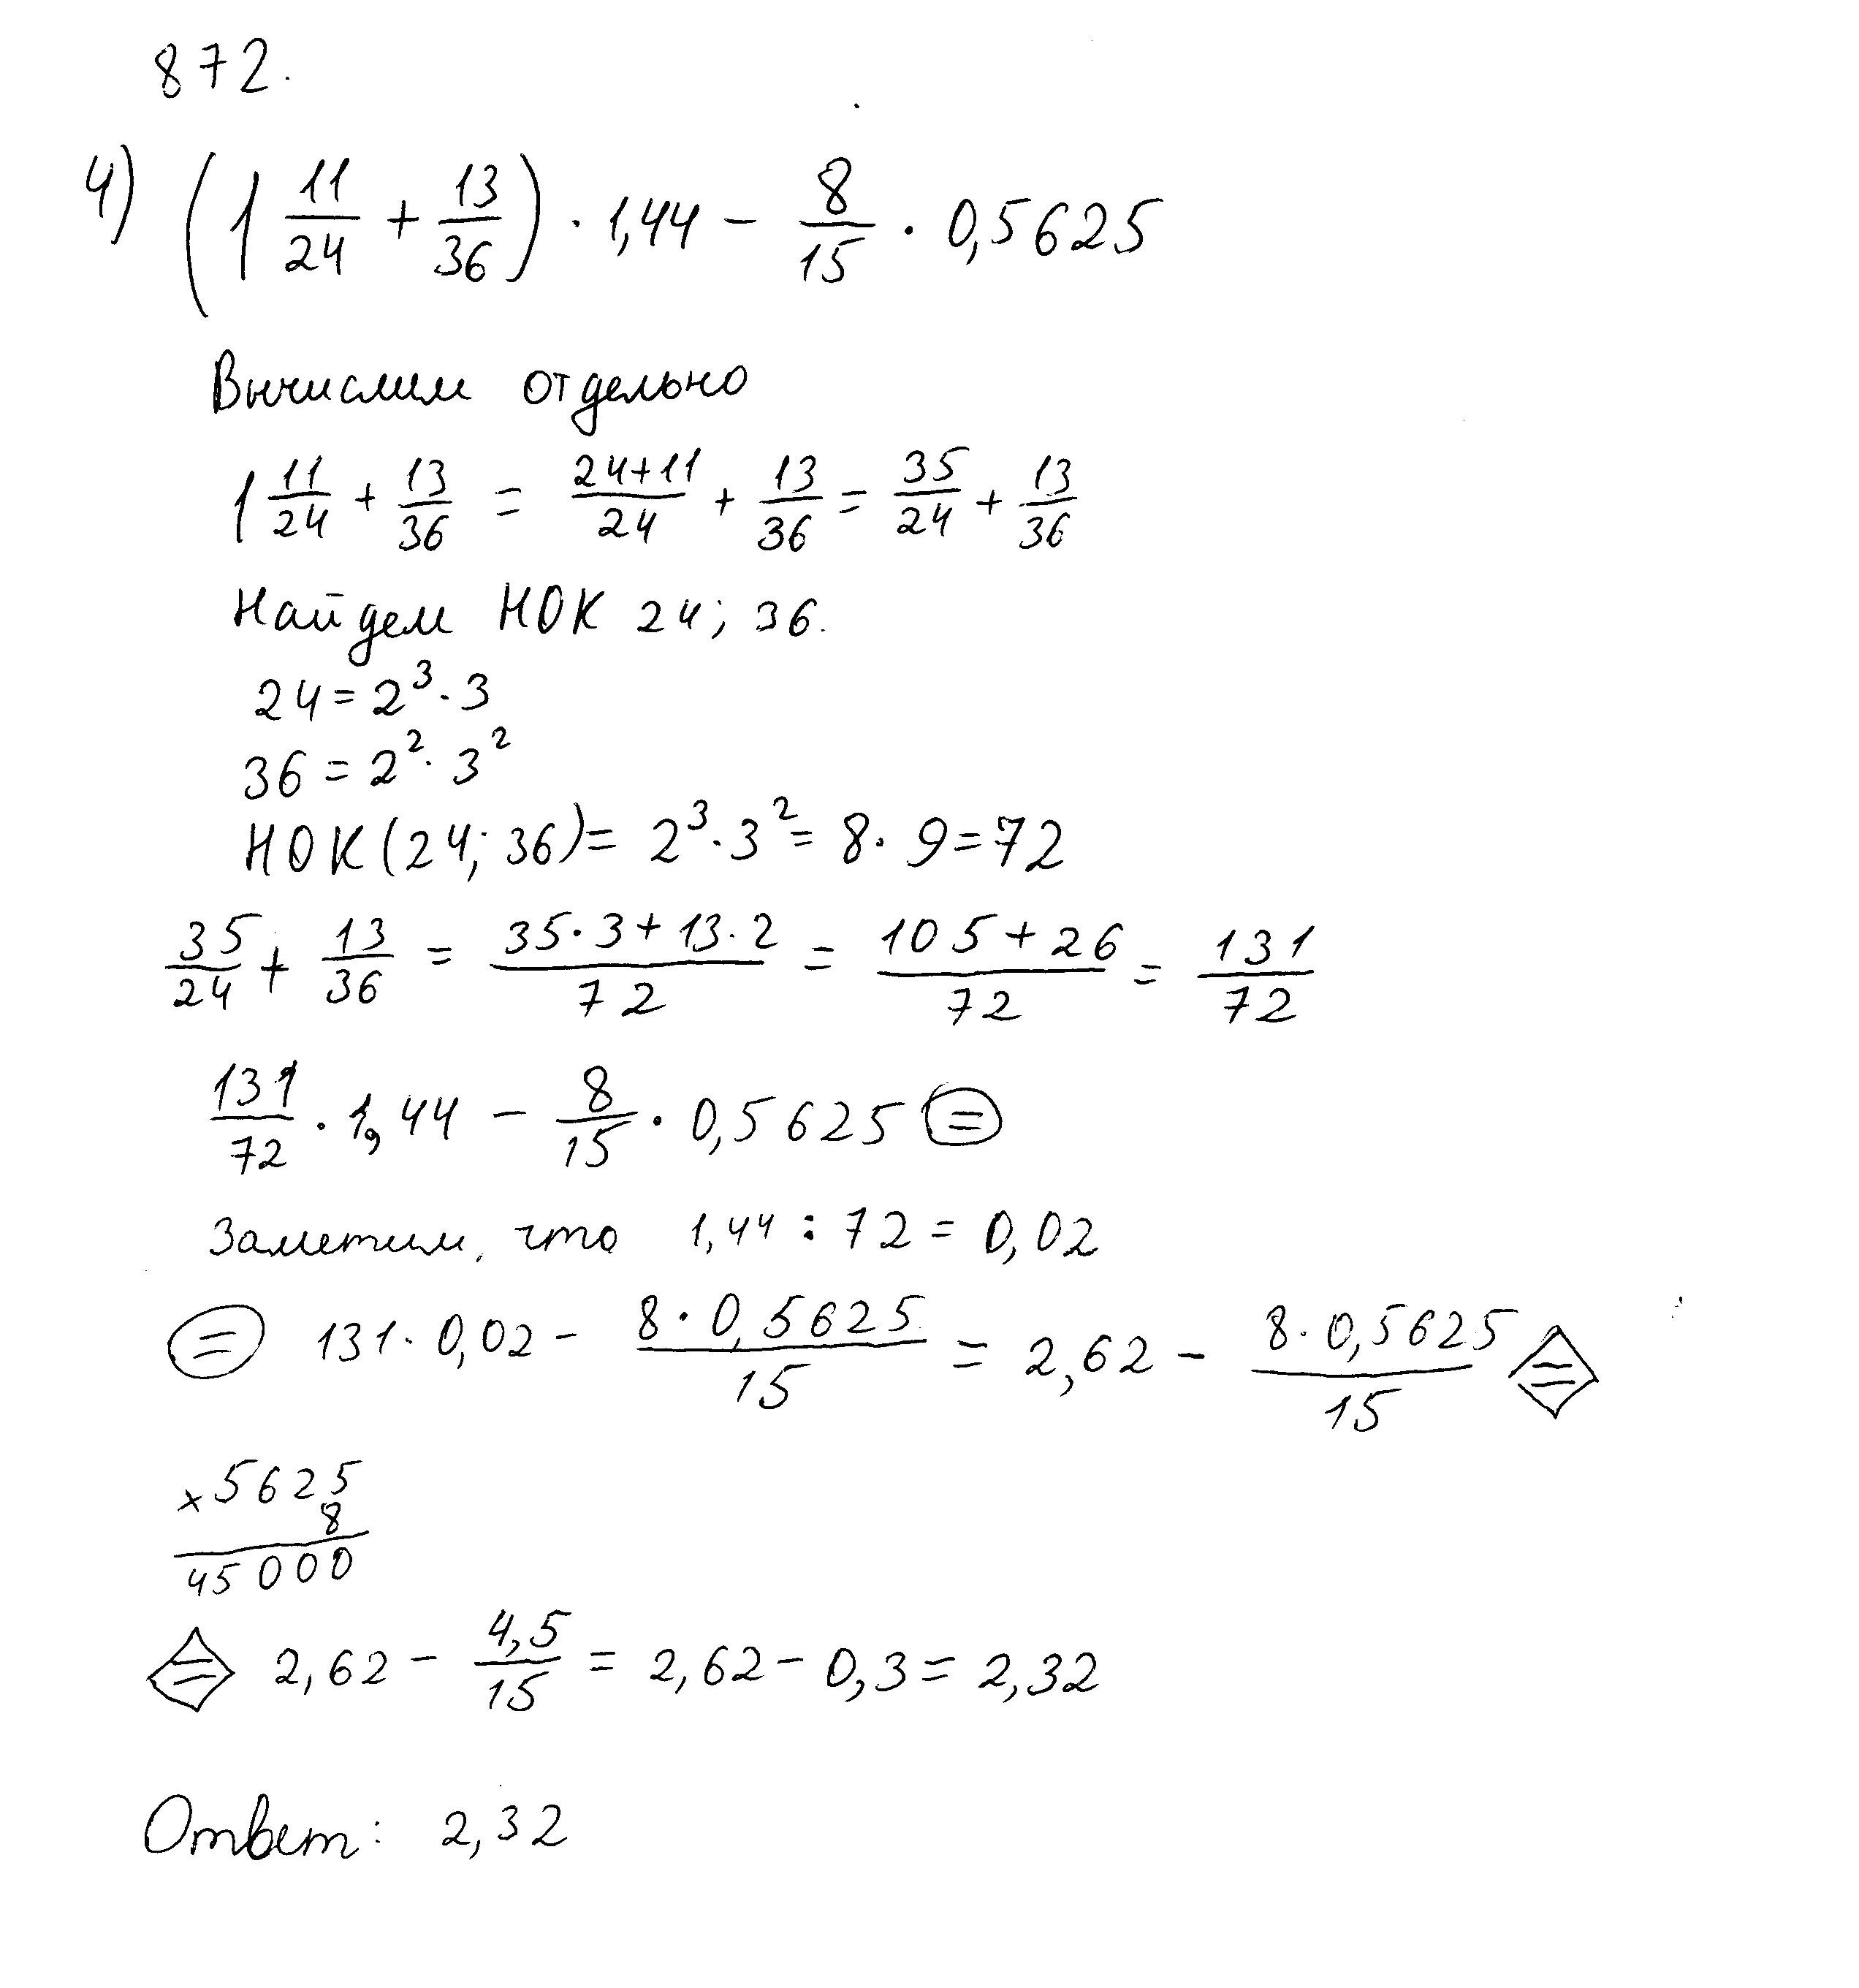 872.
4) (1 11/24 + 13/36) · 1,44 − 8/15 · 0,5625
Вычислим отдельно
1 11/24 + 13/36 = (24+11)/24 + 13/36 = 35/24 + 13/36
Найдем НОК 24; 36.
24 = 2³ · 3
36 = 2² · 3²
НОК (24; 36) = 2³ · 3² = 8 · 9 = 72
35/24 + 13/36 = (35 · 3 + 13 · 2)/72 = (105 + 26)/72 = 131/72
131/72 · 1,44 − 8/15 · 0,5625 =
Заметим, что 1,44 : 72 = 0,02
= 131 · 0,02 − (8 · 0,5625)/15 = 2,62 − (8 · 0,5625)/15 =
× 5625
8
45000
= 2,62 − 4,5/15 = 2,62 − 0,3 = 2,32
Ответ: 2,32